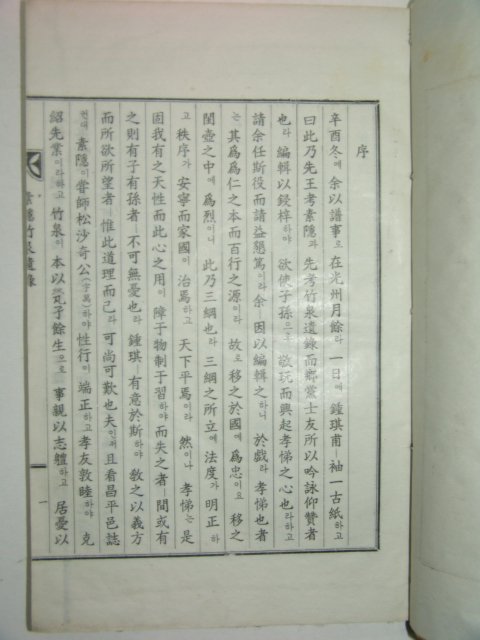 序
辛酉冬에 余以譜事로 在光州月餘라 一日에 鍾琪甫ㅣ 袖一古紙하고
曰此乃先王考素隱과 先考竹泉遺錄而鄕黨士友所以吟詠仰賛者
也라 編輯以鋟梓하야 欲使子孫으로 敬玩而興起孝悌之心也라하고
請余任斯役而請益懇篤이라 余ㅣ 因以編輯之하니 於戱라 孝悌也者
는 其爲爲仁之本而百行之源이라 故로 移之於國에 爲忠이요 移之
閨壼之中에 爲烈이니 此乃三綱也라 三綱之所立에 法度가 明正하
고 秩序가 安寧而家國이 治焉하고 天下平焉이라 然이나 孝悌는 是
固我有之天性而此心之用이 障于物制于習하야 而失之者 間或有
之則有子有孫者 不可無憂也라 鍾琪 有意於斯하야 敎之以義方
而所欲所望者 惟此道理而已라 可尚可歎也夫인저 且看昌平邑誌
컨대 素隱이 嘗師松沙奇公(宇萬)하야 性行이 端正하고 孝友敦睦하야 克
紹先業이라하고 竹泉이 本以孑餘生으로 事親以志軆하고 居憂以
素隱竹泉遺錄
一